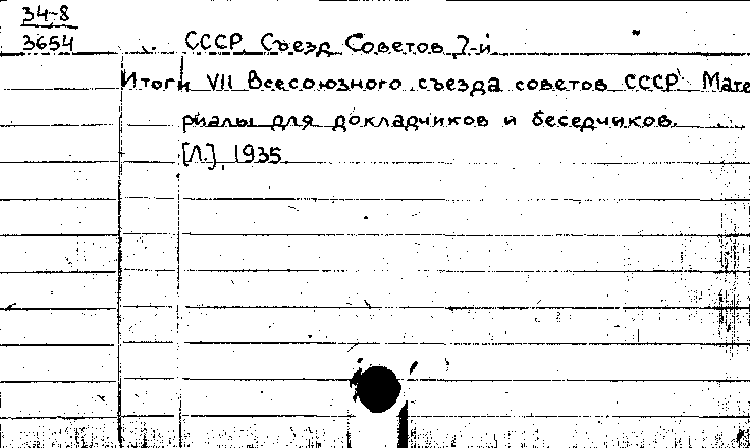 34-8
3654
СССР. Съезд Советов, 7-й.
Итоги VII Всесоюзного съезда советов СССР. Мате
риалы для докладчиков и беседчиков.
[Л.], 1935.